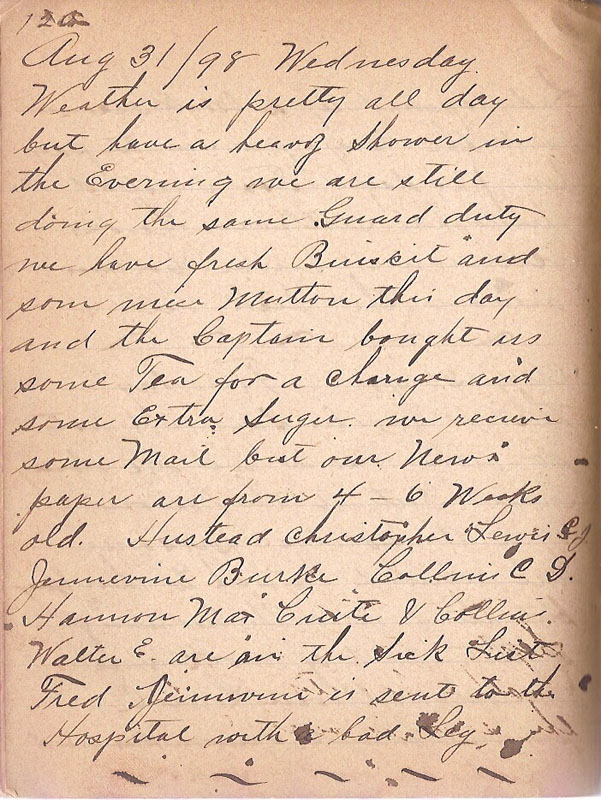 Aug 31/98 Wednesday
Weather is pretty all day
but have a heavy Shower in
the Evening we are still
doing the same Guard duty
we have fresh Buiscit and
som nice Mutton this day
and the Captain bought us
some Tea for a change and
some Extra Suger. we recieve
some Mail but our News
paper are from 4 - 6 Weeks
old. Hustead Christopher Lewis
Burke Collins C D.
Hannon & Collins
Walter E. are on the Sick List
Fred is sent to the
Hospital with a bad Leg.